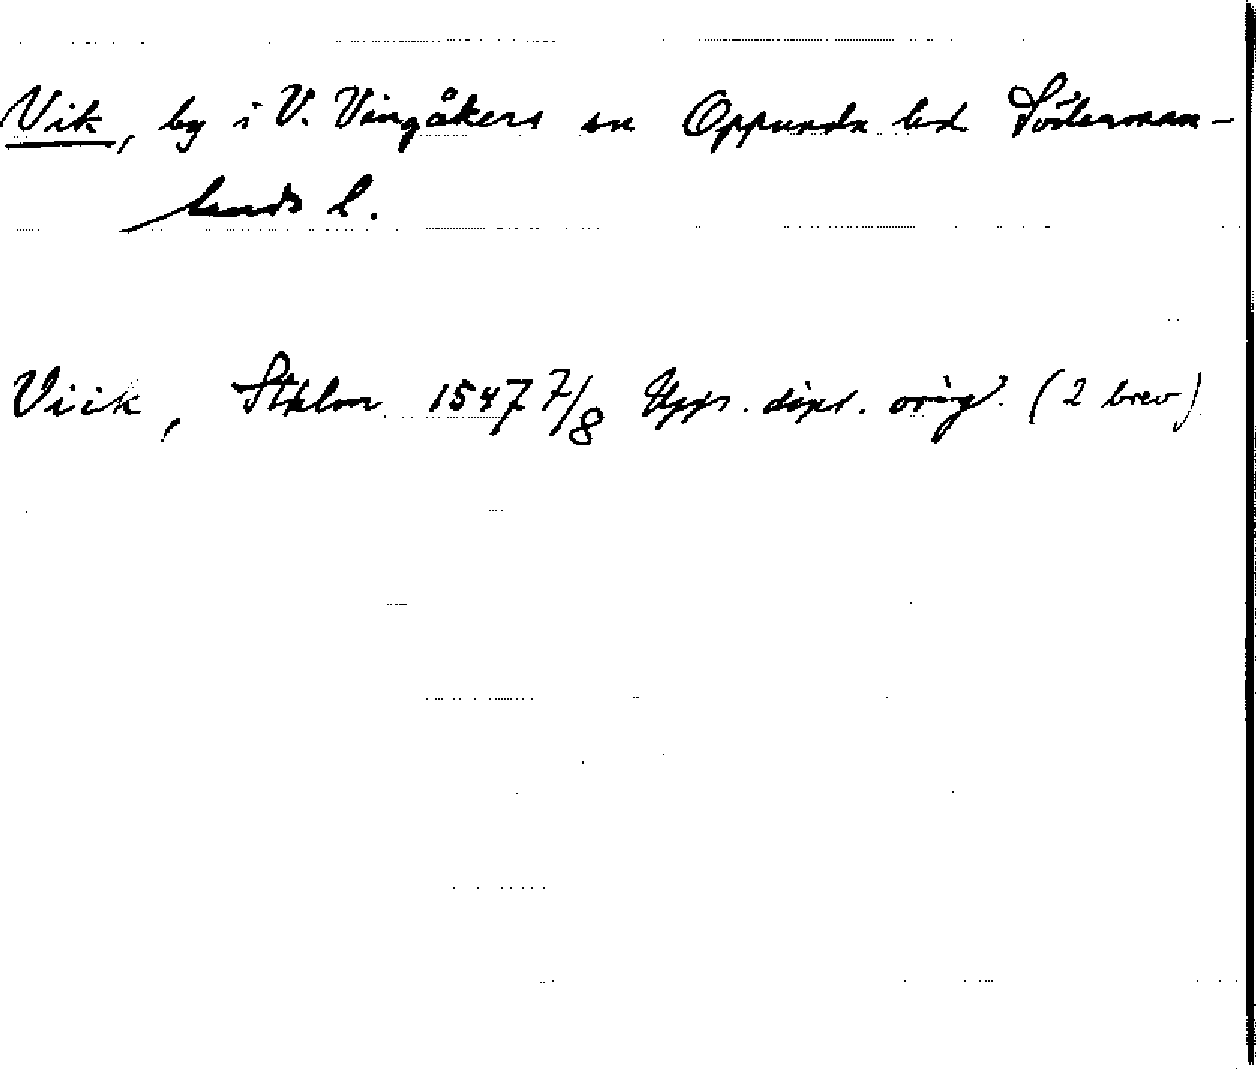 Vik, by i V. Vingåkers sn Oppunda hd. Söderman-
lands l.
Viik, Sthlm 1547 7/8 Upps. dipl. orig. (2 brev)